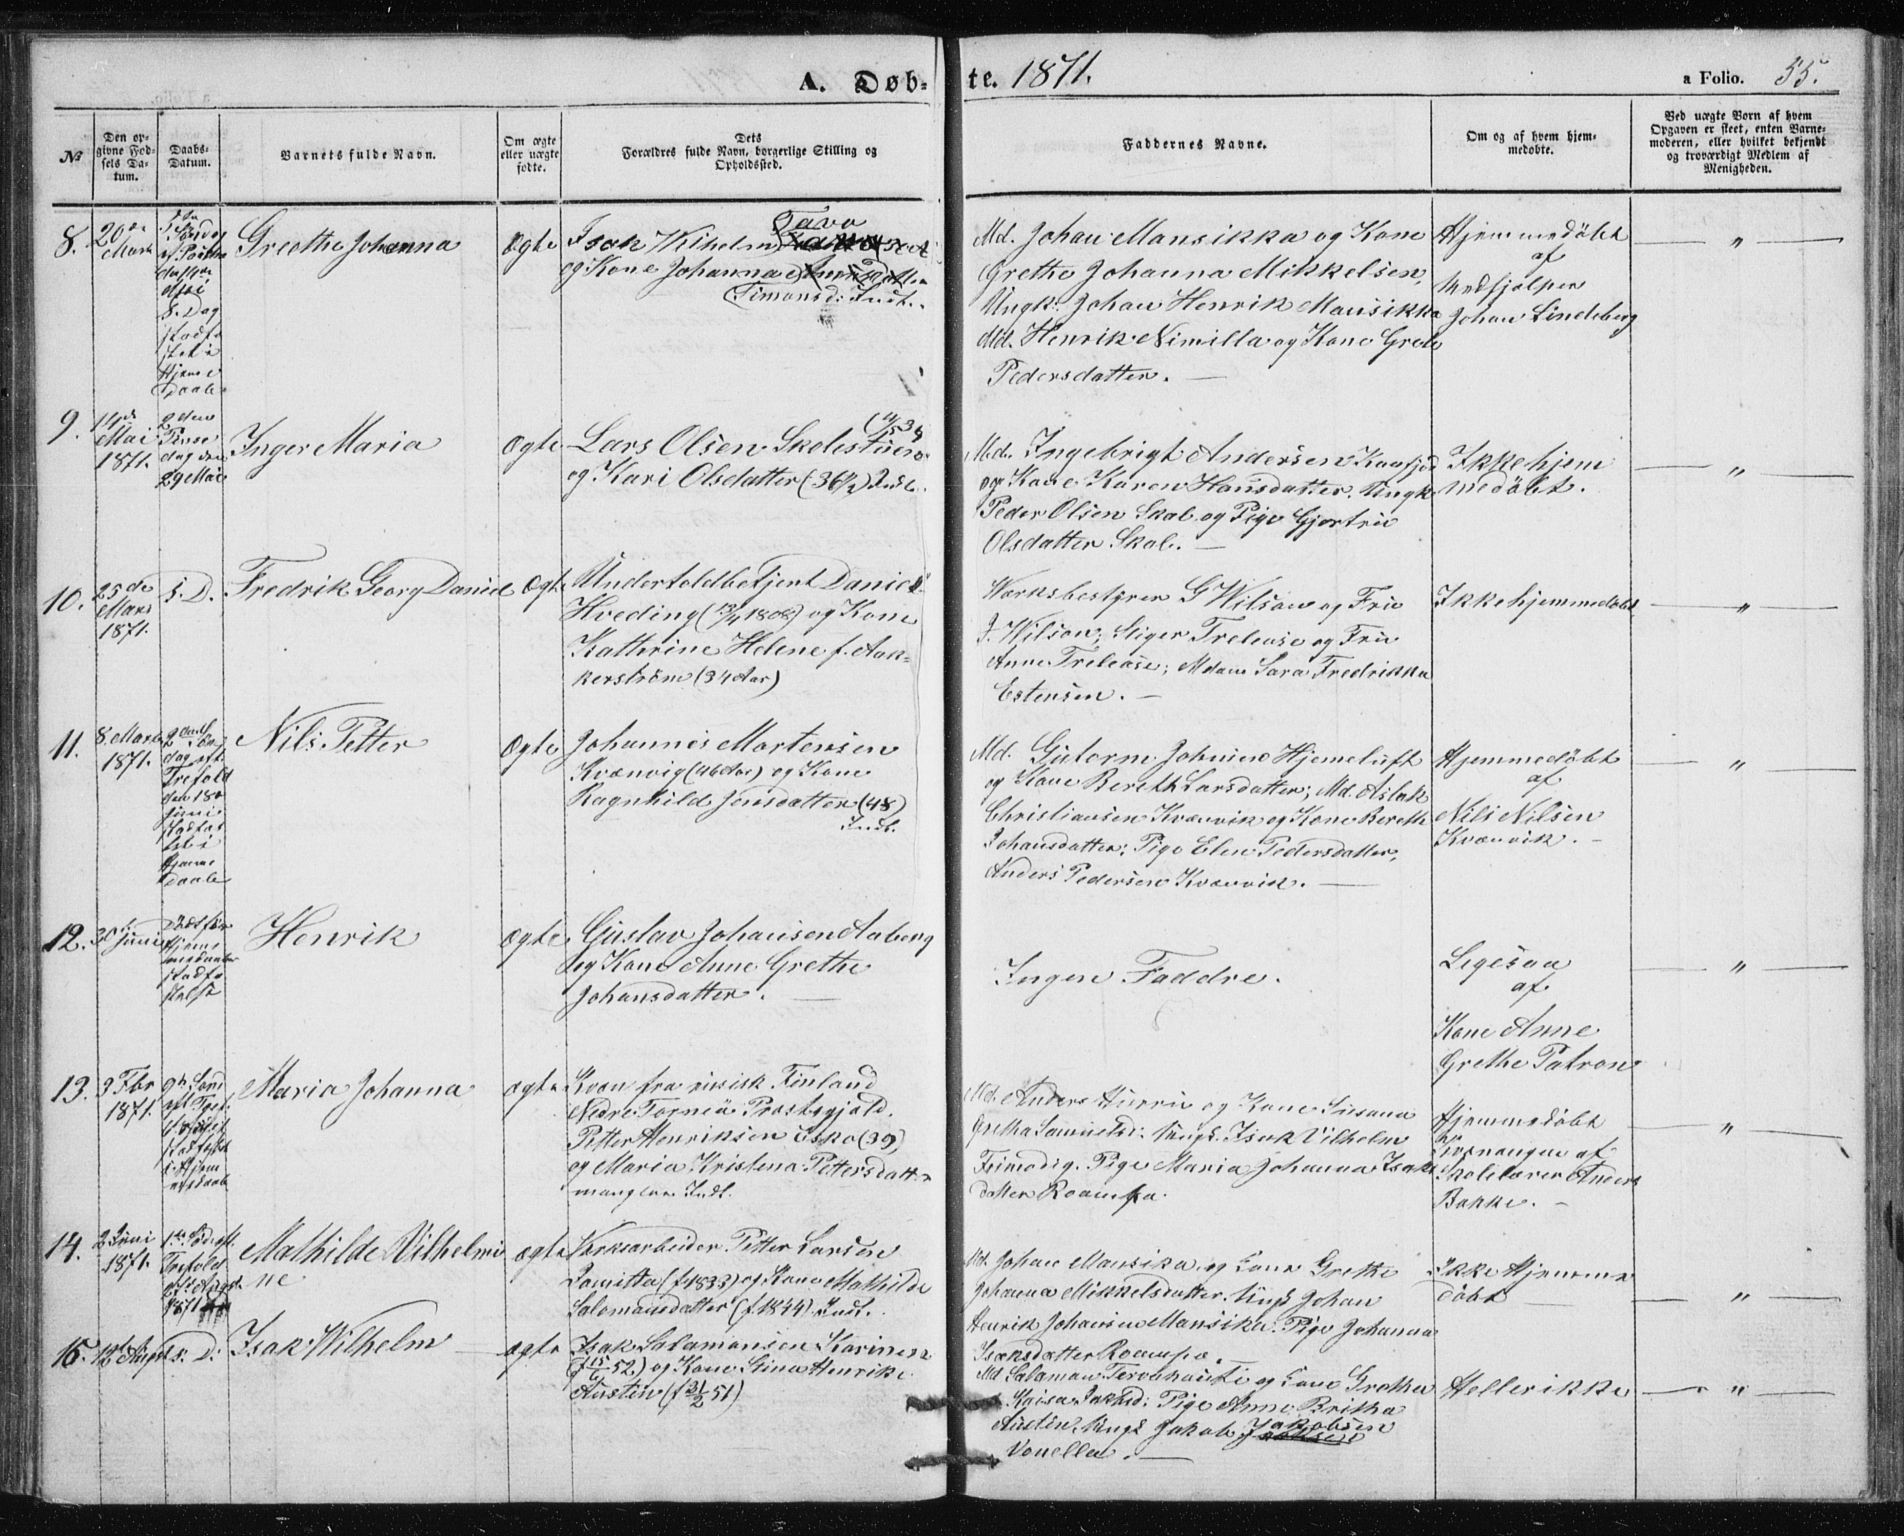 A. Døb-
te. 1871.
a Folio. 55.
No
Den op-
givne Fød-
sels Da-
tum.
Daabs-
Datum.
Barnets fulde Navn.
Om ægte
eller uægte
fødte.
Dets
Forældres fulde Navn, borgerlige Stilling og
Opholdssted.
Faddernes Navne.
Om og af hvem hjem-
medøbte.
Ved uægte Børn af hvem
Opgaven er skeet, enten Barne-
moderen, eller hvilket bekjendt
og troværdigt Medlem af
Menigheden.
8.
20de
Marts
8. Dag
stadfæ
stet i
Hjemme
daab
Greethe Johanna
Ægte
Isak Vilhelm Tava
og Kone Johanna
Simonsd: Indl.
Md. Johan Mansikka og Kone
Grethe Johanna Mikkelsen,
Ungk: Johan Henrik Mansikka
Md. Henrik Nimilla og Kone Grete
Pedersdatter. —
Hjemmedøbt
af
Medhjælper
Johan Lindeberg
— " —
9.
14de
Mai
1871.
2den
Pinse
dag den
29 Mai
Inger Maria
Ægte
Lars Olsen Skolestuen
og Kari Olsdatter (36 ½) Indl.
Md. Ingebrigt Andersen Kaafjord
og Kone Karen Hansdatter. Ungk
Peder Olsen Skab og Pige Gjertrue
Olsdatter Skab. —
Ikke hjem
medøbt.
— " —
10.
25de
Mars
1871.
s. D.
Fredrik Georg Daniel
Ægte
Undertoldbetjent Daniel
Hveding og Kone
Kathrine Helene f. Aak-
kerstrøm (34 Aar)
Værksbestyrer G Wilson og Fru
J. Wilson; Stiger Trelease og Fru
Anne Trelease; Mdame Sara Fredrikka
Estensen. —
Ikke hjemmedøbt
— " —
11.
8. Marts
1871.
2den Søn
dag eft
Trefold
den 18de
Juni
stadfæs
tet i
Hjemme
daab
Nils Petter
Ægte
Johannes Mortensen
Kvænvig (46 Aar) og Kone
Ragnhild Jensdatter (48)
Indl.
Md. Gutorm Johnsen Hjemeluft
og Kone Bereth Larsdatter; Md. Aslak
Christiansen Kvænvik og Kone Bereth
Johansdatter; Pige Elen Pedersdatter,
Anders Pedersen Kvænvik. —
Hjemmedøbt
af
Nils Nilsen
Kvænvik. —
— " —
12.
30te Juni
Død før
Hjemme
daaben
stadfæ
stelse
Henrik
Ægte
Gustav Johansen Aaberg
og Kone Anne Grethe
Johansdatter. —
Ingen Faddre.
Ligesaa
af
Kone Anne
Grethe Patron
— " —
13.
3 Fbr
1871.
9de Sønd
eft Tref.
stadfæst
i Hjem
medaab
Maria Johanna
Ægte
Kvæn fra russisk Finland
Nedre Torneå Prostegjæld.
Petter Henriksen Esko (39)
og Maria Kristena Pettersdatter
mangler Indl.
Md. Anders Hurru og Kone Susana
Gretha Samuelsd: Ungk. Isak Vilhelm
Frimodig. Pige Maria Johanna Isaks
datter Roampa.
Hjemmedøbt
i Kvænangen af
Skolelærer Anders
Bakke. —
— " —
14.
2 Juni
1871.
Trefold
1871
Mathilde Vilhelmi
ne
Ægte
Værksarbeider Petter Larsen
Lomitta (f. 1833) og Kone Mathilde
Salomansdatter (f. 1844) Indl.
Md. Johan Mansika og Kone Grethe
Johanna Mikkelsdatter. Ungk Johan
Henrik Johansen Mansika. Pige Johanna
Isaksdatter Roampa.
Ikke Hjemme
døbt
— " —
15.
s. D.
Isak Wilhelm
Ægte
Isak Salamonsen Karinen
og Kone Stina Henrike
Austin
Md Salaman Tervahauti og Kone Gretha
Kaisa Jakbd: Pige Anna Brikka
Austin. Ungk Jakob Jakobsen
Vonella. —
Heller ikke
— " —